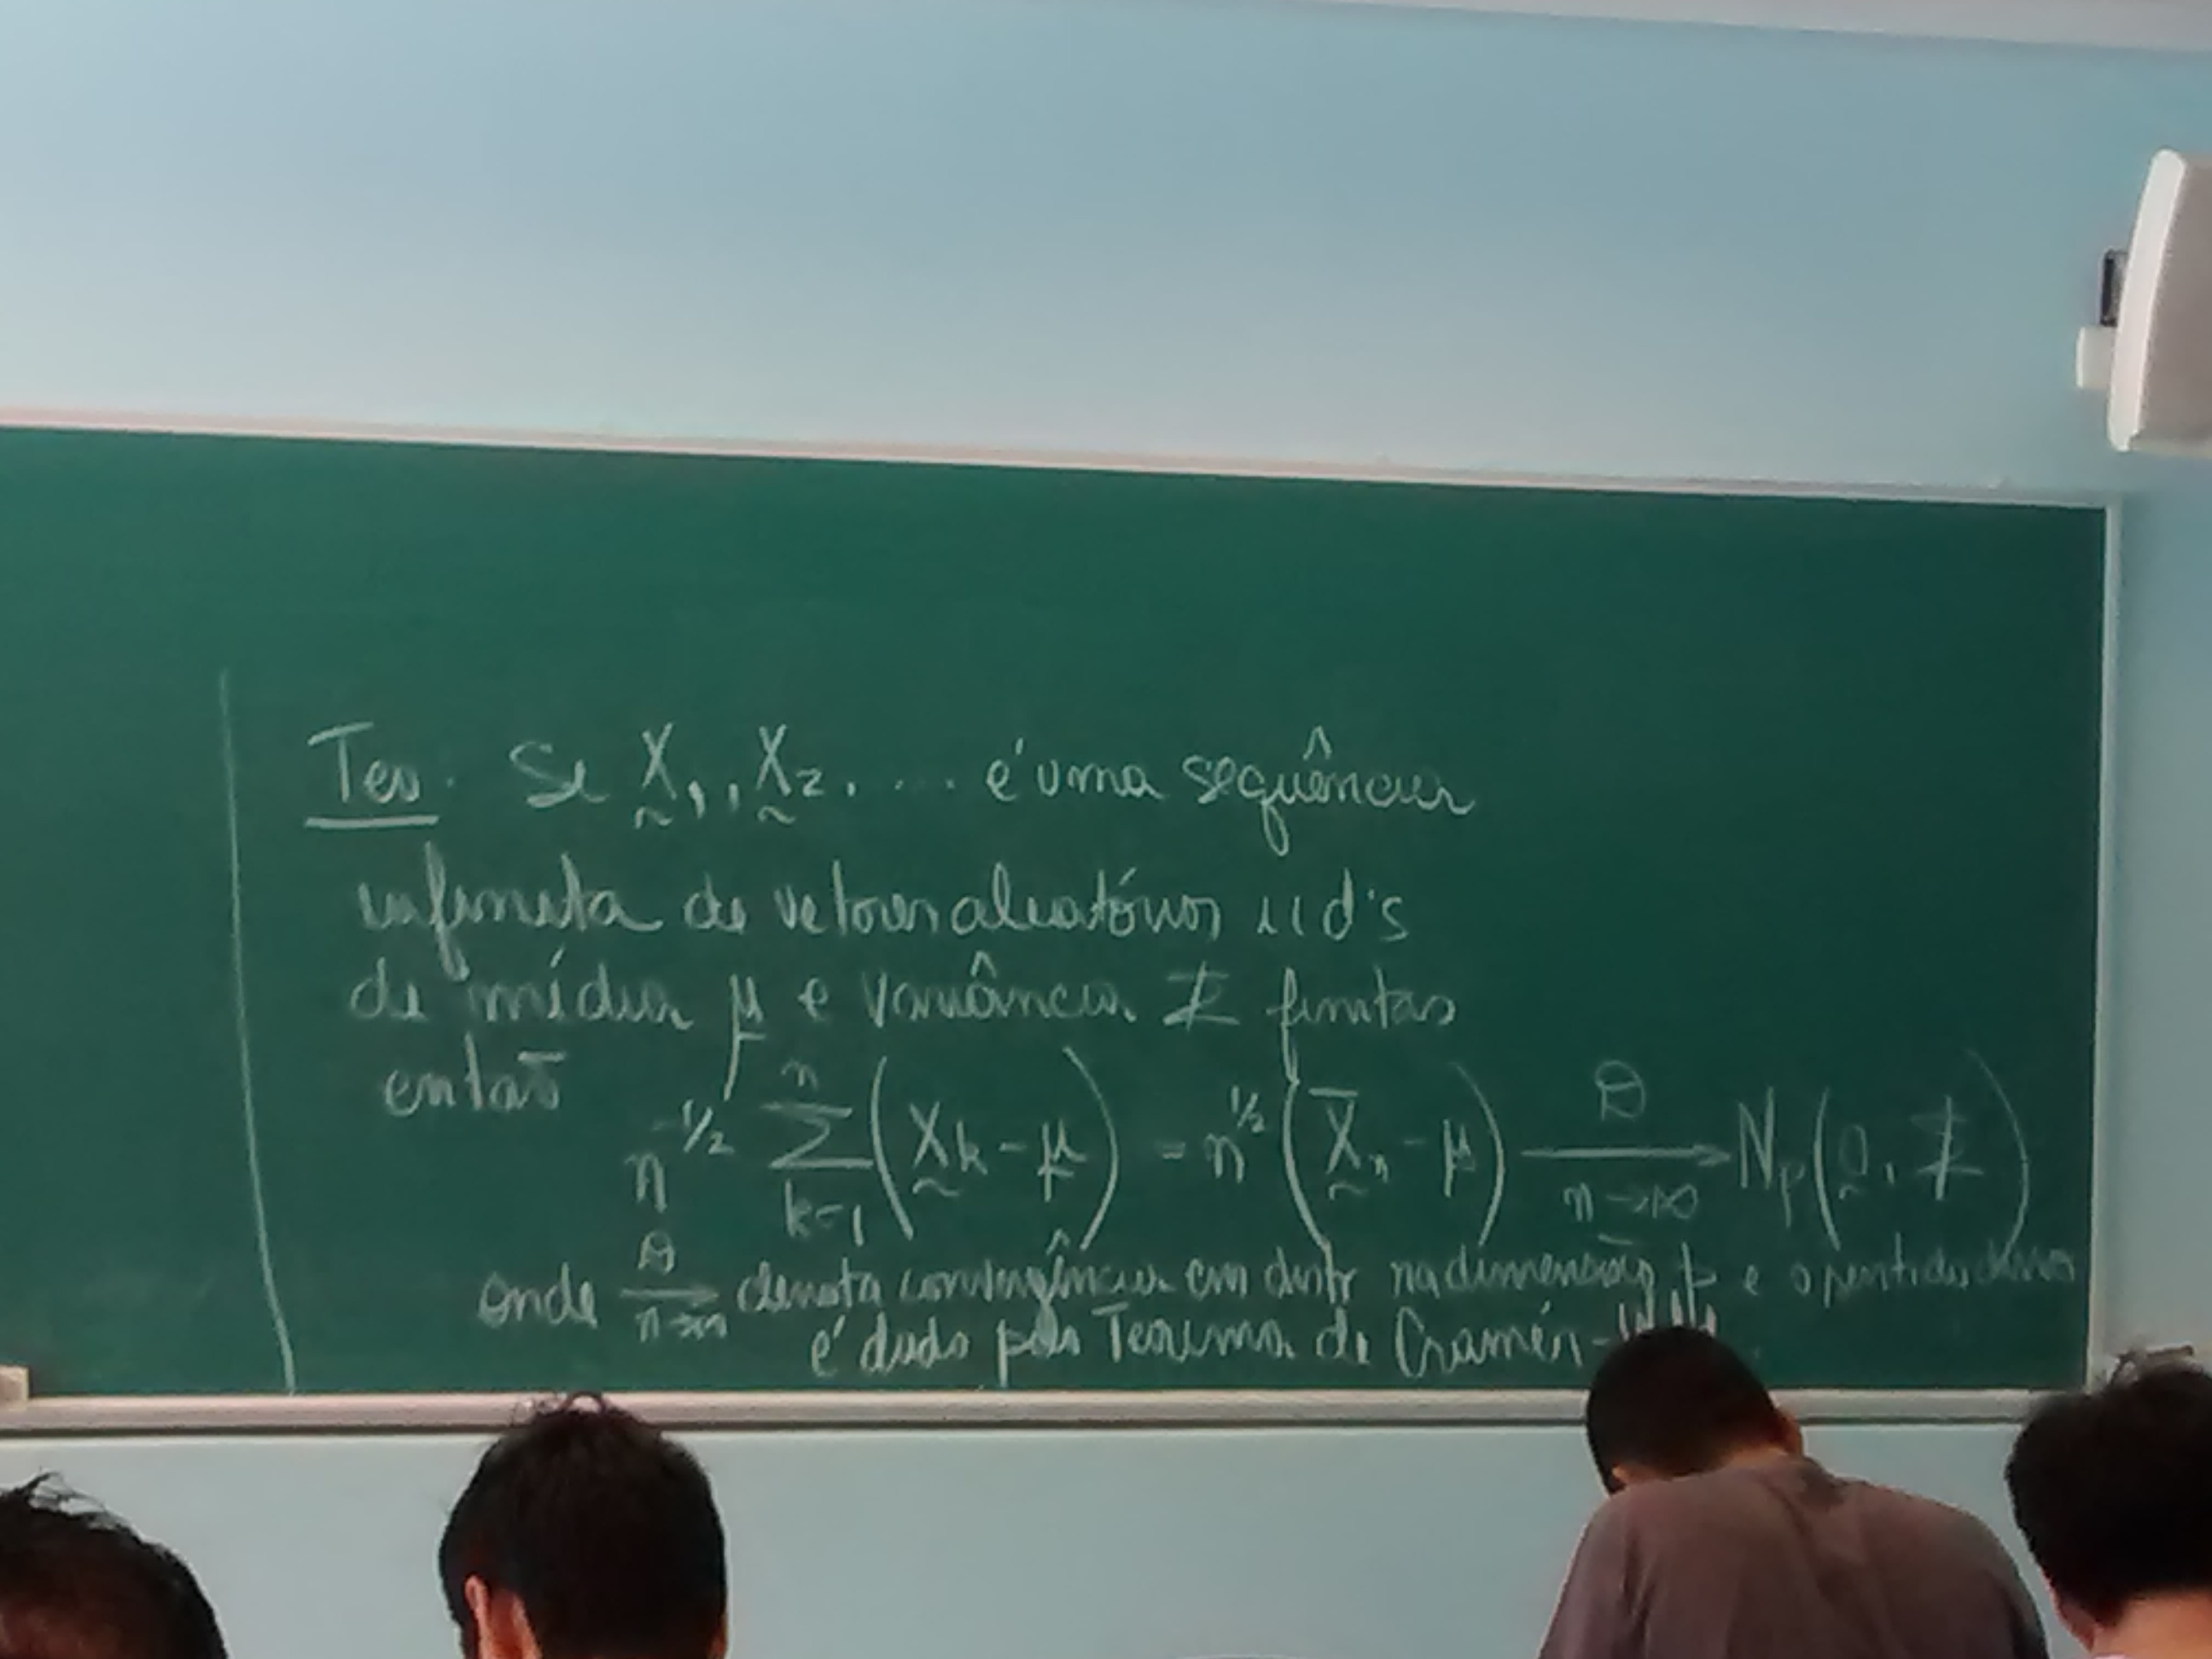 Teo. Se X̰₁, X̰₂, .... é uma sequência
infinita de vetores aleatórios iid's
de média μ e variância Σ finitas
então
n^{-1/2} Σ_{k=1}^{n} (X̰k - μ) = n^{1/2} (X̰̄ₙ - μ) →^{D}_{n→∞} N_p(0̰, Σ)
onde →^{D}_{n→∞} denota convergência em distr na dimensão p e o sentido
é dado pelo Teorema de Cramér-